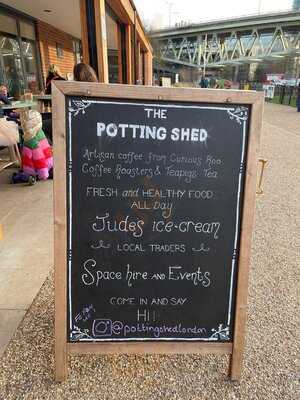 THE
POTTING SHED
Artisan coffee from Curious Roo
Coffee Roasters & Teapigs Tea
FRESH and HEALTHY FOOD
ALL DAY
Judes ice-cream
LOCAL TRADERS
Space hire AND Events
COME IN AND SAY
HI!
@pottingshedlondon